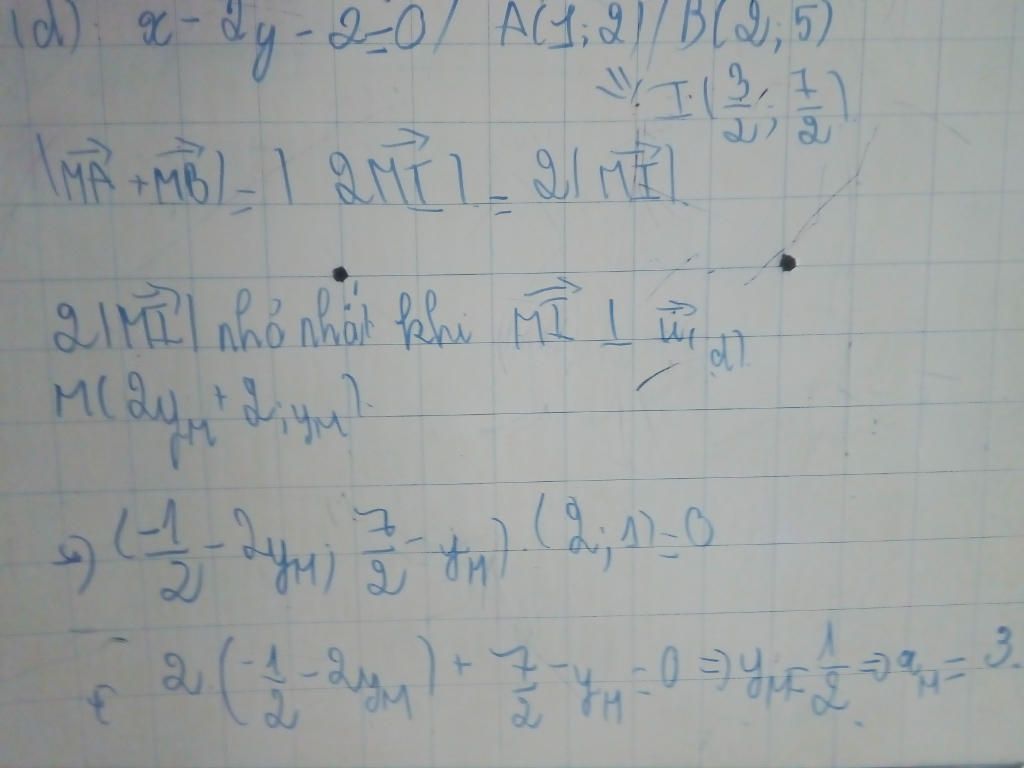 (d) x - 2y - 2 = 0 / A(1; 2) / B(2; 5)
=> I(3/2; 7/2)
|MA + MB| = | 2MI | = 2|MI|
2|MI| nhỏ nhất khi MI ⊥ u(d)
M(2yM + 2; yM)
=> (-1/2 - 2yM; 7/2 - yM).(2; 1) = 0
2(-1/2 - 2yM) + 7/2 - yM = 0 => yM = 1/2 => xM = 3.